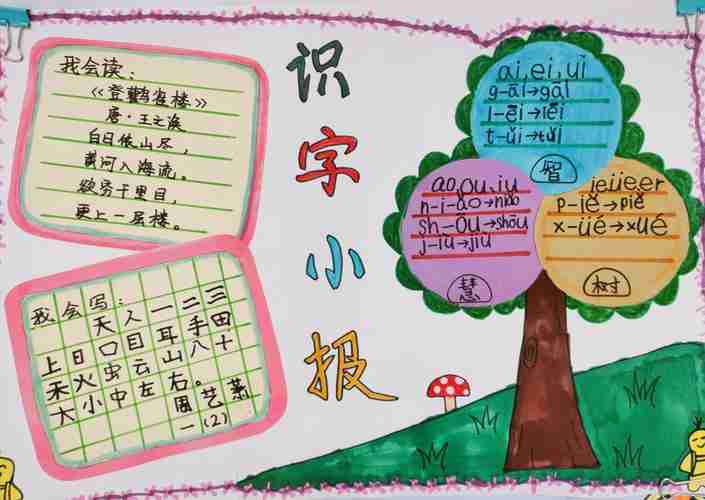 识字小报
我会读：
《登鹳雀楼》
唐·王之涣
白日依山尽，
黄河入海流。
欲穷千里目，
更上一层楼。
我会写：
天人一二三
上日口目耳手田
禾火虫云山八十
大小中左右。
周艺
一（2）
ai,ei,ui
g-āi→gāi
l-ēi→lēi
t-uǐ→tuǐ
智
ao,ou,iu
n-i-ǎo→niǎo
sh-ōu→shōu
j-iu→jiu
慧
ieüeer
p-iě→piě
x-üé→xué
树